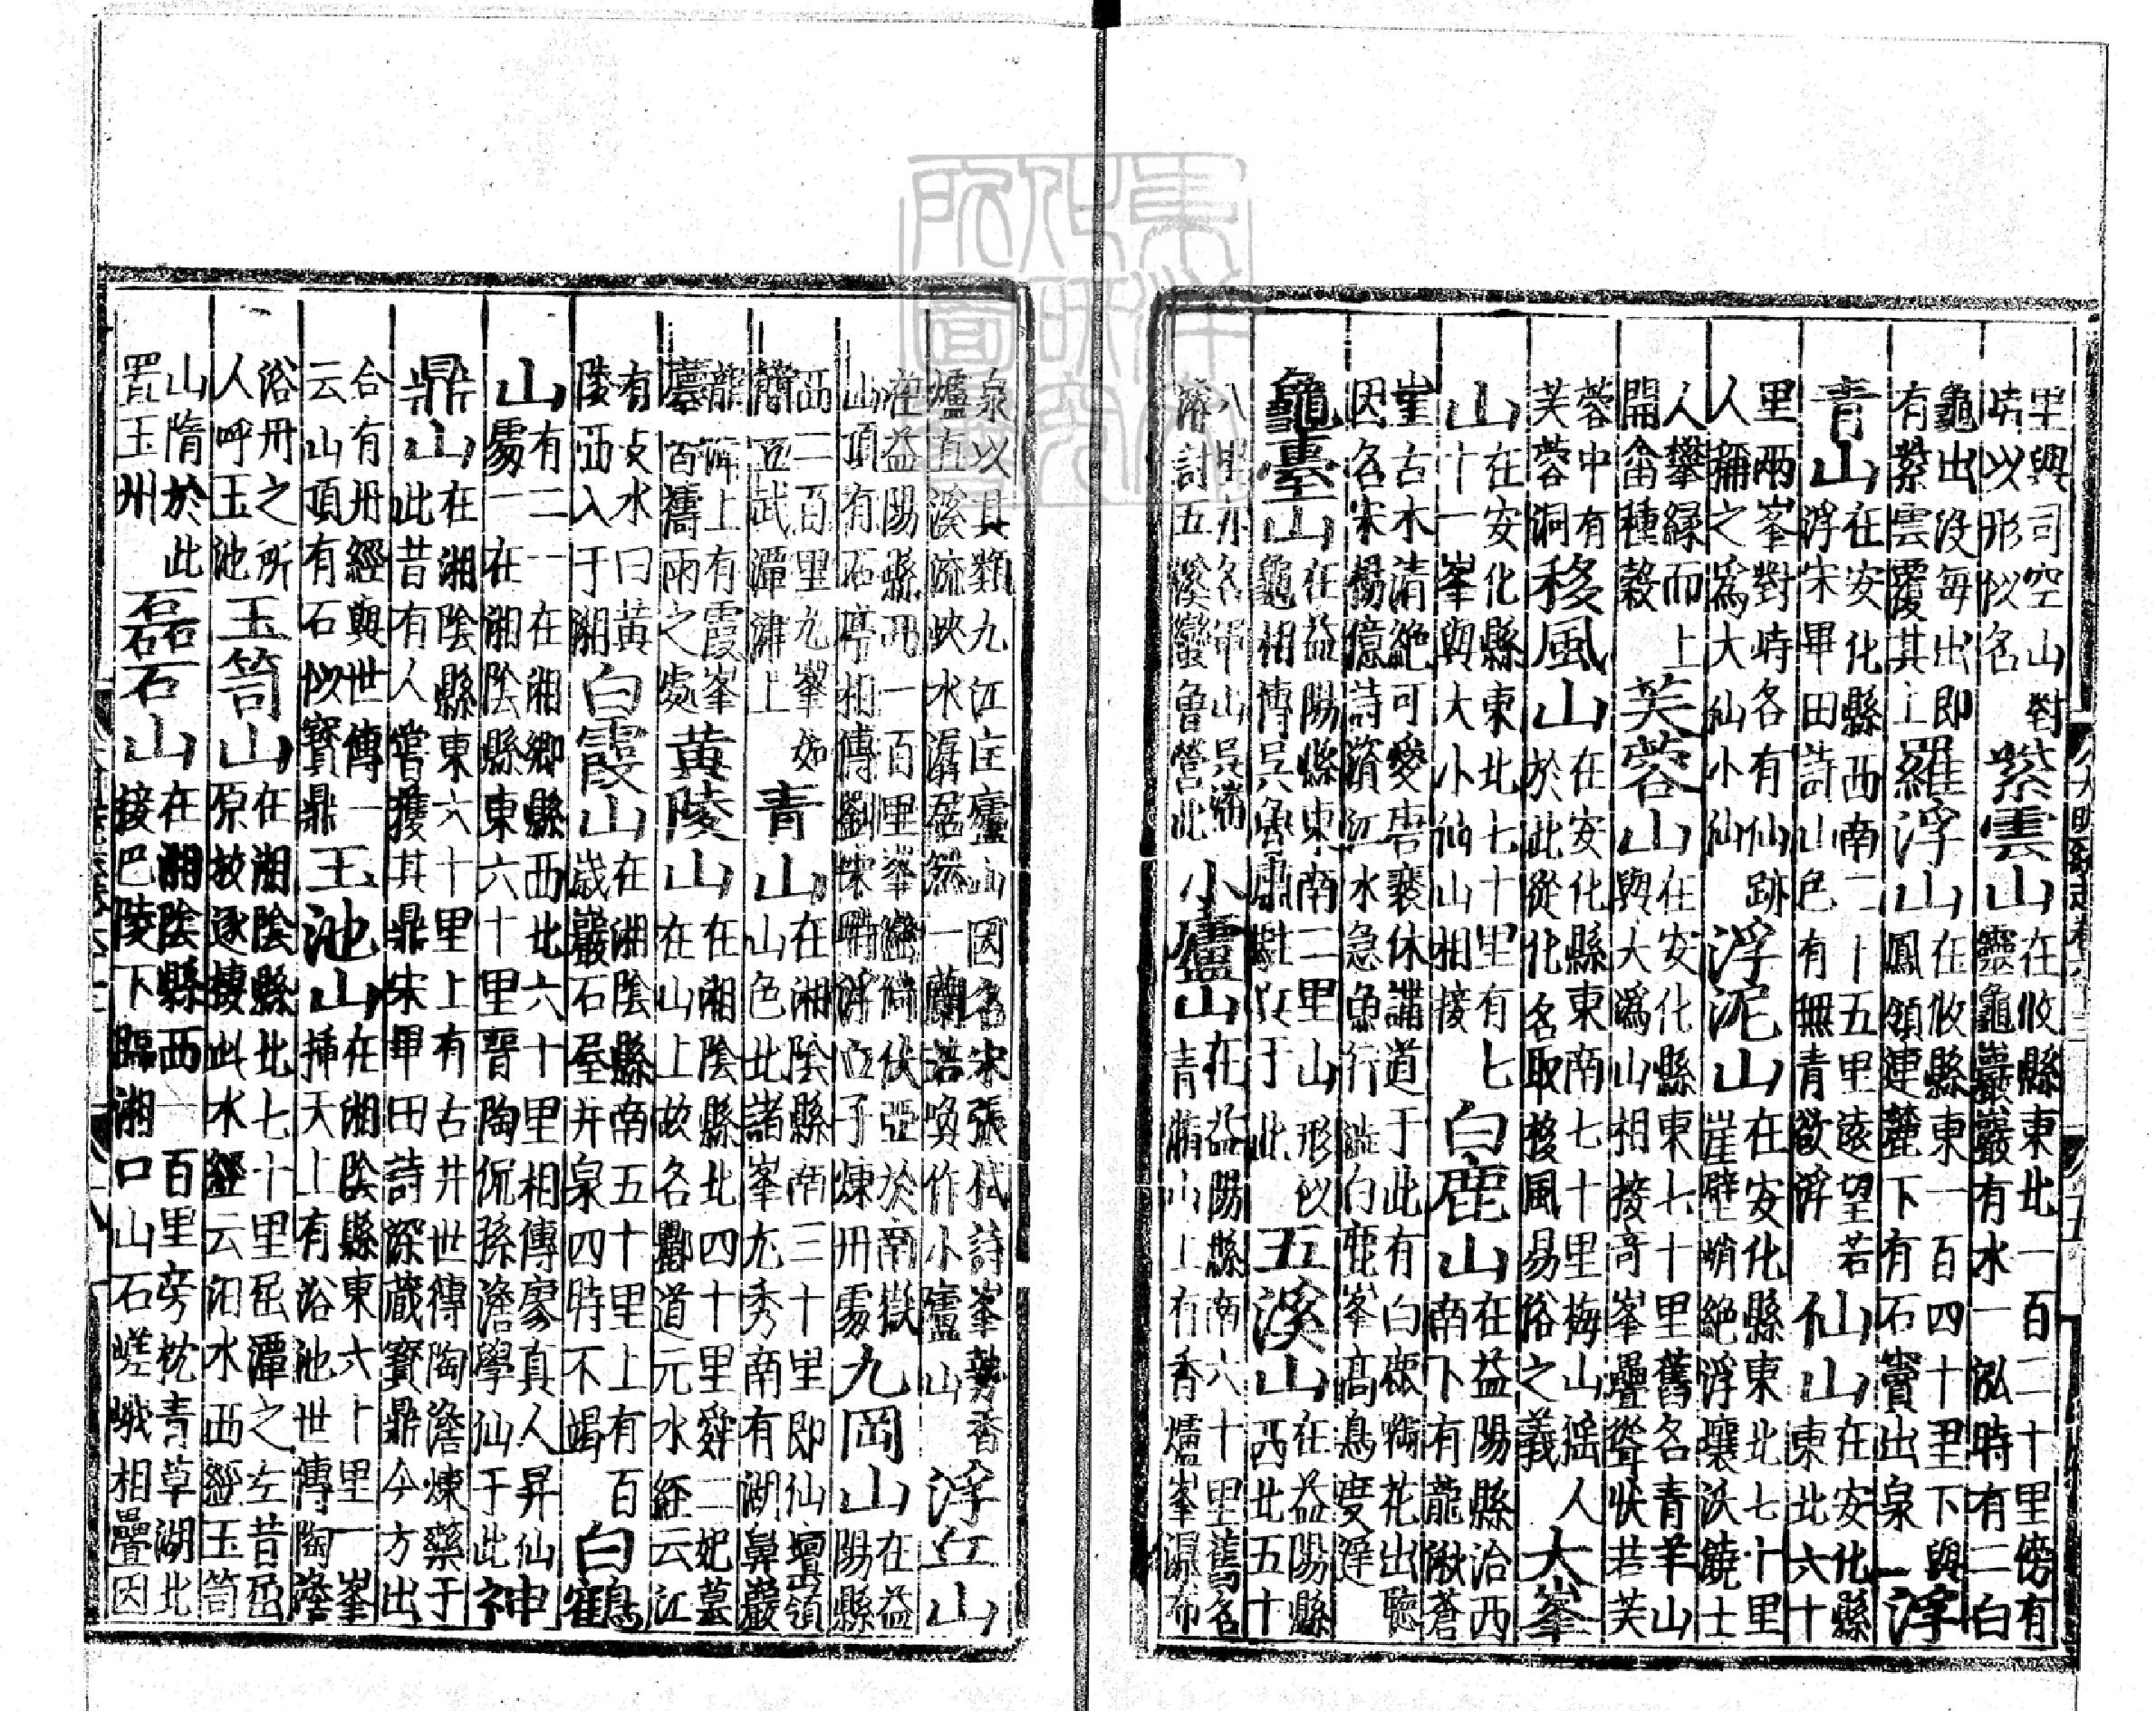 里與司空山對峙以形似名紫雲山在攸縣東北一百二十里傍有靈龜巖巖有水一泓時有二白
龜出沒每出即有紫雲覆其上羅浮山在攸縣東一百四十里下與鳳嶺連麓下有石竇出泉浮
青山在安化縣西南二十五里遠望若浮宋畢田詩山色有無青欲浮仙山在安化縣東北六十
里兩峯對峙各有仙跡人稱之爲大仙小仙浮泥山在安化縣東北七十里崖壁峭絕浮壤沃饒土
人攀緣而上開畬種穀芙蓉山在安化縣東七十里舊名青羊山與大溈山相接奇峯疊聳狀若芙
蓉中有芙蓉洞移風山在安化縣東南七十里梅山猺人於此從化名取移風易俗之義大峯
山在安化縣東北七十里有七十一峯與大小仙山相接白鹿山在益陽縣治西南下有龍湫蒼
崖古木清絕可愛唐裴休講道于此有白鹿啣花出聽因名宋楊億詩濱江水急魚行澁白鹿峯高鳥度遲
龜臺山在益陽縣東南二里山形似龜相傳吳魯肅駐兵于此五溪山在益陽縣西北五十
八里亦名軍山吳潘濬討五溪蠻魯營此小廬山在益陽縣南六十里舊名青脩山上有香爐峯瀑布
泉以其類九江匡廬山因名宋張栻詩峯勢香爐直溪流峽水潺居然一蘭若喚作小廬山浮丘山
在益陽縣西一百里峯巒倚伏亞於南嶽山頂有石亭相傳劉宋時浮丘子煉丹處九岡山在益陽縣
西二百里九峯如簪西武潭津上青山在湘陰縣南三十里即仙壇嶺山色比諸峯尤秀南有湖鼻巖
龍湫上有霞峯禱雨之處黃陵山在湘陰縣北四十里舜二妃墓在山上故名酈道元水經云江
有支水曰黃陵西入于湘白霞山在湘陰縣南五十里上有百歲巖石屋井泉四時不竭白鶴
山有二一在湘鄉縣西北六十里相傳寥真人昇仙處一在湘陰縣東六十里晉陶侃孫澹學仙于此神
鼎山在湘陰縣東六十里上有古井世傳陶澹煉藥于此昔有人嘗獲其鼎宋畢田詩深藏寶鼎今方出
合有丹經與世傳一云山頂有石似寶鼎玉池山在湘陰縣東六十里一峯插天上有浴池世傳陶澹
浴丹之所人呼玉池玉笥山在湘陰縣北七十里屈潭之左昔屈原放逐棲此水經云汨水西經玉笥
山隋於此置玉州磊石山在湘陰縣西一百里旁枕青草湖北接巴陵下臨湘口山石嵯峨相疊因